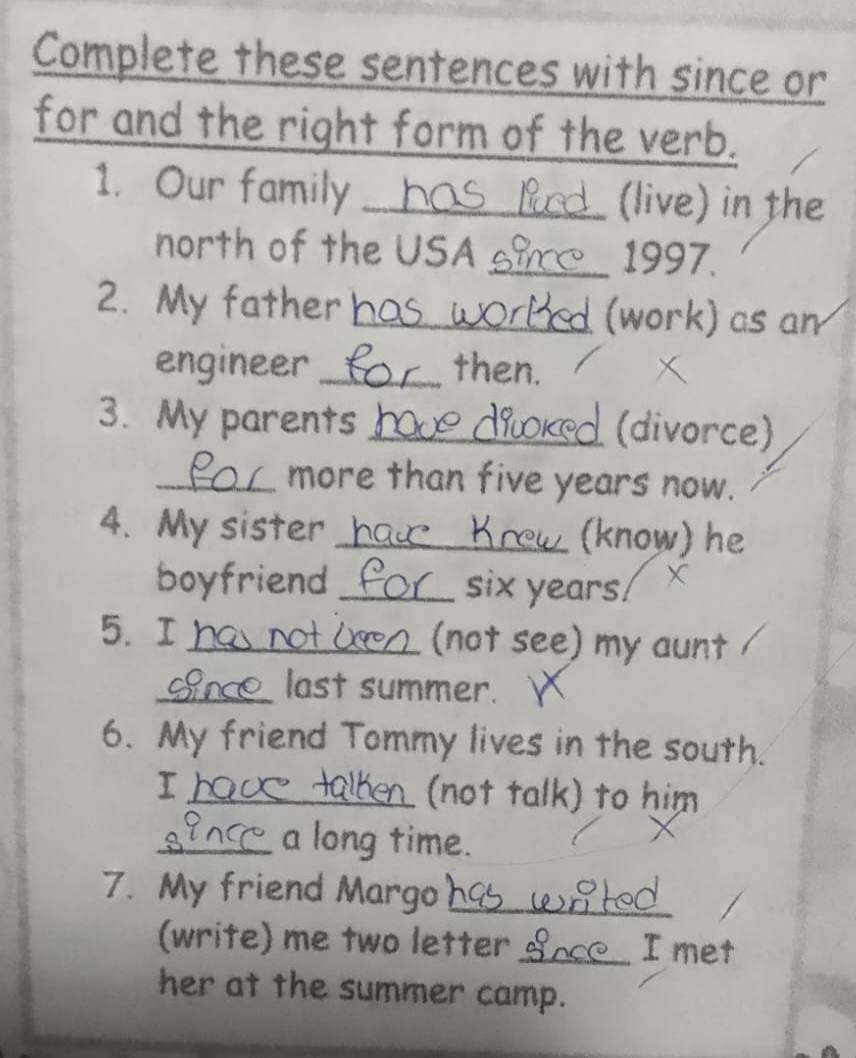 Complete these sentences with since or
for and the right form of the verb.
1. Our family has lived (live) in the
north of the USA since 1997.
2. My father has worked (work) as an
engineer for then.
3. My parents have divoked (divorce)
for more than five years now.
4. My sister have knew (know) he
boyfriend for six years.
5. I has not been (not see) my aunt
since last summer.
6. My friend Tommy lives in the south.
I have talken (not talk) to him
since a long time.
7. My friend Margo has writed
(write) me two letter since I met
her at the summer camp.